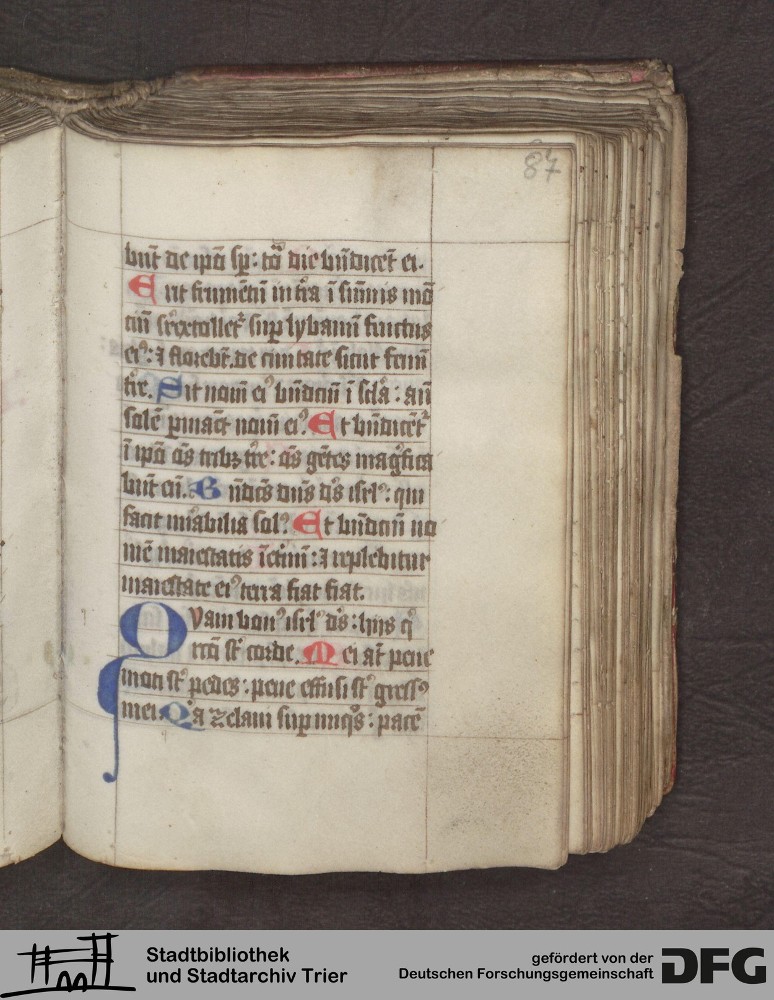 87
bunt de ipā sp̄: tō die bn̄dicēt ei.
Erit frumētū in tr̄a ī sūmis mō
ciū sr̄extolletᷣ sup lybanū fructus
eiꝰ: ⁊ florebt̄ de ciuitate sicut fenū
tr̄e. Sit nom̄ eiꝰ bn̄dcm̄ ī scl̄a: an̄
solē pmāet nom̄ eiꝰ. Et bn̄dicētᷣ
ī ipō om̄s tribꝫ tr̄e: om̄s gētes magͥfica
bunt eū. Bn̄dc̄s dn̄s ds̄ isrl̄: qui
facit mͥabilia solꝰ. Et bn̄dcm̄ no
mē maiestatis ī et̄nū: ⁊ replebitur
maiestate eiꝰ terra fiat fiat.
Qvam bonꝰ isrl̄ ds̄: hijs qͥ
rc̄o st̄ corde. Mei at̄ pene
moti st̄ pedes: pene effusi st̄ gressꝰ
mei. Qͥa zelaui sup iniqͦs: pacē
Stadtbibliothek
und Stadtarchiv Trier
gefördert von der
Deutschen Forschungsgemeinschaft
DFG